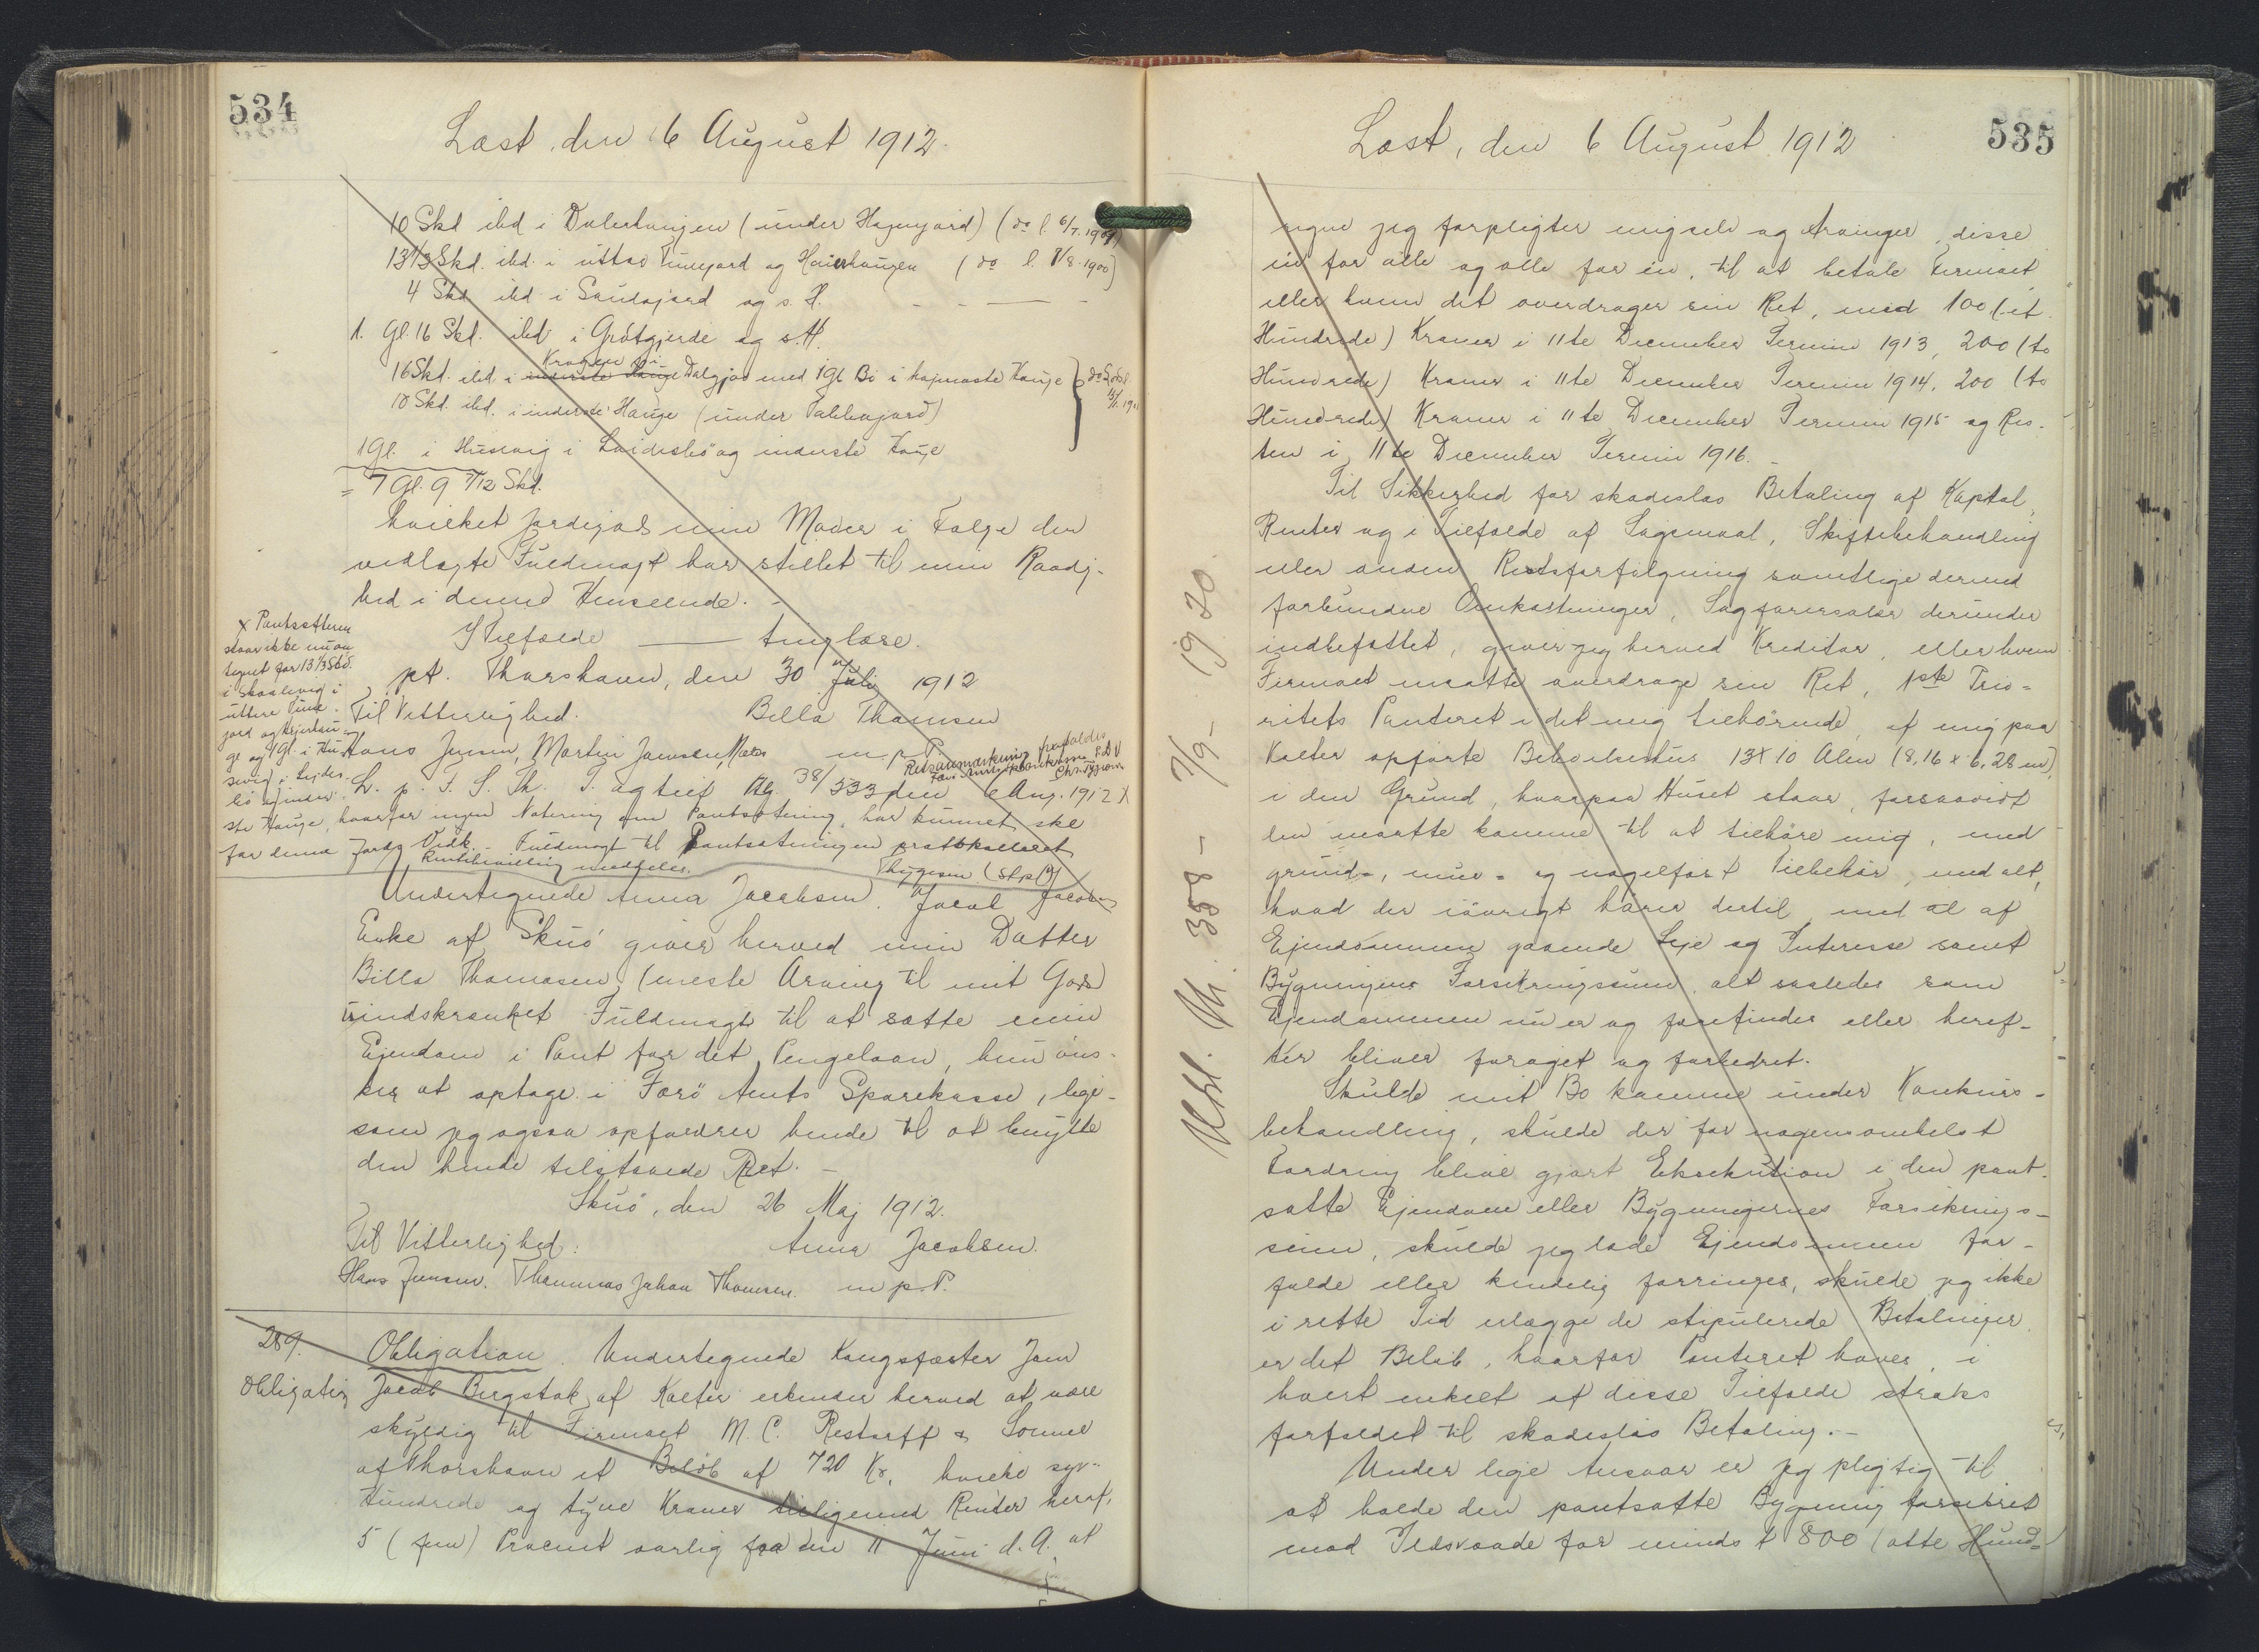 534
Læst, den 6 August 1912.
10 Skd ibd i Dalerhaugen (under Hagengjard) (do l. 6/7. 1909)
13 1/3 Skd. ibd. i uttas Tunegard og Haierhaugen (do l. 7/8. 1900)
4 Skd ibd i Saudagjard og s. H. - - — -
1. Gl. 16 Skd. ibd i Grøtgjerde og s. H.
Krogen i
16 Skd. ibd i inderste Hauge Dalgjard med 1 Gl. Bø i højmaste Hauge
10 Skd. ibd. i inderste Hauge (under Takkegjard)
1 Gl. i Husevig i Leidesbø og inderste Hauge
= 7 Gl. 9 7/12 Skd.
hvilket Jordegods min Moder i Følge den
vedlagte Fuldmagt har stillet til min Raadig-
hed i denne Henseende. -
I Tilfælde — tinglæse.
pt. Thorshavn, den 30 Juli 1912
Til Vitterlighed. Billa Thomsen
Hans Jensen, Martin Jansen, m. p. P.
x Pantsætteren
staar ikke nu an
tegnet for 13 1/3 Skd.
i Skaalevig i
uttere Tune-
jord og Hejerhau-
ge og 1 Gl. i Hu
sevig i Lejdes
bø og inder-
ste Hauge, hvorfor ingen Notering om Pantsætning har kunnet ske
for denne Jord.
Retsanmærkning frafaldes
L. p. F. S. Th. T. og tilf Bg 38/533 den 6 Aug. 1912 x
Vedk. Fuldmagt til Pantsætningen protokolleret
Rentebevilling meddeles. Thygesen (St.p.)
Undertegnede Anna Jacobsen, Jacob Jacobsens
Enke af Skuø giver herved min Datter
Billa Thomasen (næste Arving til mit Gods)
uindskrænket Fuldmagt til at sætte min
Ejendom i Pant for det Pengelaan, hun øns-
ker at optage i Færø Amts Sparekasse, lige-
som jeg ogsaa opfordrer hende til at benytte
den hende tilstaaede Ret. -
Skuø, den 26 Maj 1912.
Til Vitterlighed: Anna Jacobsen.
Hans Jensen. Thommas Johan Thomsen. m. p. P.
289. Obligation. Undertegnede Kongsfæster Jens
Obligation Jacob Bergstak af Kolter erkender herved at være
skyldig til Firmaet M. C. Restorff & Sønner
af Thorshavn et Beløb af 720 Kr, hvilke syv-
Hundrede og tyve Kroner tilligemed Renter heraf,
5 (fem) Procent aarlig fra den 11 Juni d. A. at
535
Læst, den 6 August 1912
regne jeg forpligter migselv og Arvinger, disse
en for alle og alle for en, til at betale Firmaet
eller hvem det overdrager sin Ret, med 100 (et
Hundrede) Kroner i 11te December Termin 1913, 200 (to
Hundrede) Kroner i 11te December Termin 1914, 200 (to
Hundrede) Kroner i 11te December Termin 1915 og Res-
ten i 11te December Termin 1916.
Til Sikkerhed for skadesløs Betaling af Kaptal,
Renter og i Tilfælde af Søgsmaal, Skiftebehandling
eller anden Retsforfølgning samtlige dermed
forbundne Omkostninger, Sagførersalær derunder
indbefattet, giver jeg herved Kreditor, eller hvem
Firmaet maatte overdrage sin Ret, 1ste Prio-
ritets Panteret i det mig tilhørende, af mig paa
Kolter opførte Beboelseshus 13 x 10 Alen (8,16 x 6,28 m),
i den Grund, hvorpaa Huset staar, forsaavidt
den maatte komme til at tilhøre mig, med
grund-, mur- og nagelfast Tilbehør, med alt,
hvad der iøvrigt hører dertil, med al af
Ejendommen gaaende Leje og Interesse samt
Bygningens Forsikringssum, alt saaledes som
Ejendommen nu er og forefindes eller heref-
ter bliver forøget og forbedret.
Skulde mit Bo komme under Konkurs-
behandling, skulde der for nogensomhelst
Fordring blive gjort Eksekution i den pant-
satte Ejendom eller Bygningernes Forsikrings-
sum, skulde jeg lade Ejendommen for-
falde eller kendelig forringes, skulde jeg ikke
i rette Tid erlægge de stipulerede Betalinger
er det Beløb, hvorfor Panteret haves, i
hvert enkelt af disse Tilfælde straks
forfaldet til skadesløs Betaling. -
Under lige Ansvar er jeg pligtig til
at holde den pantsatte Bygning forsikret
mod Ildsvaade for mindst 800 (otte Hund-
Udsl. Nr. 358 - 7/9 - 1920.